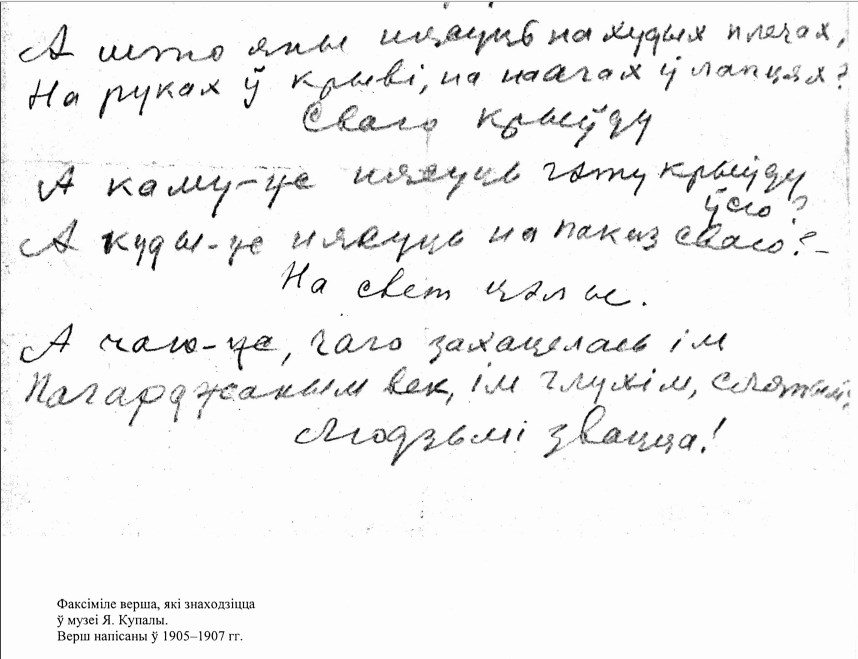 А што яны нясуць на худых плечах,
На руках ў крыві, на нагах ў лапцях?
Сваю крыўду
А каму-ж нясуць гэту крыўду
ўсю?
А куды-ж нясуць на паказ сваю? –
На свет цэлы.
А чаго-ж, чаго захацелась ім
Пагарджаным век, ім глухім, сляпым?
Людзьмі звацца!
Факсіміле верша, які знаходзіцца
ў музеі Я. Купалы.
Верш напісаны ў 1905–1907 гг.